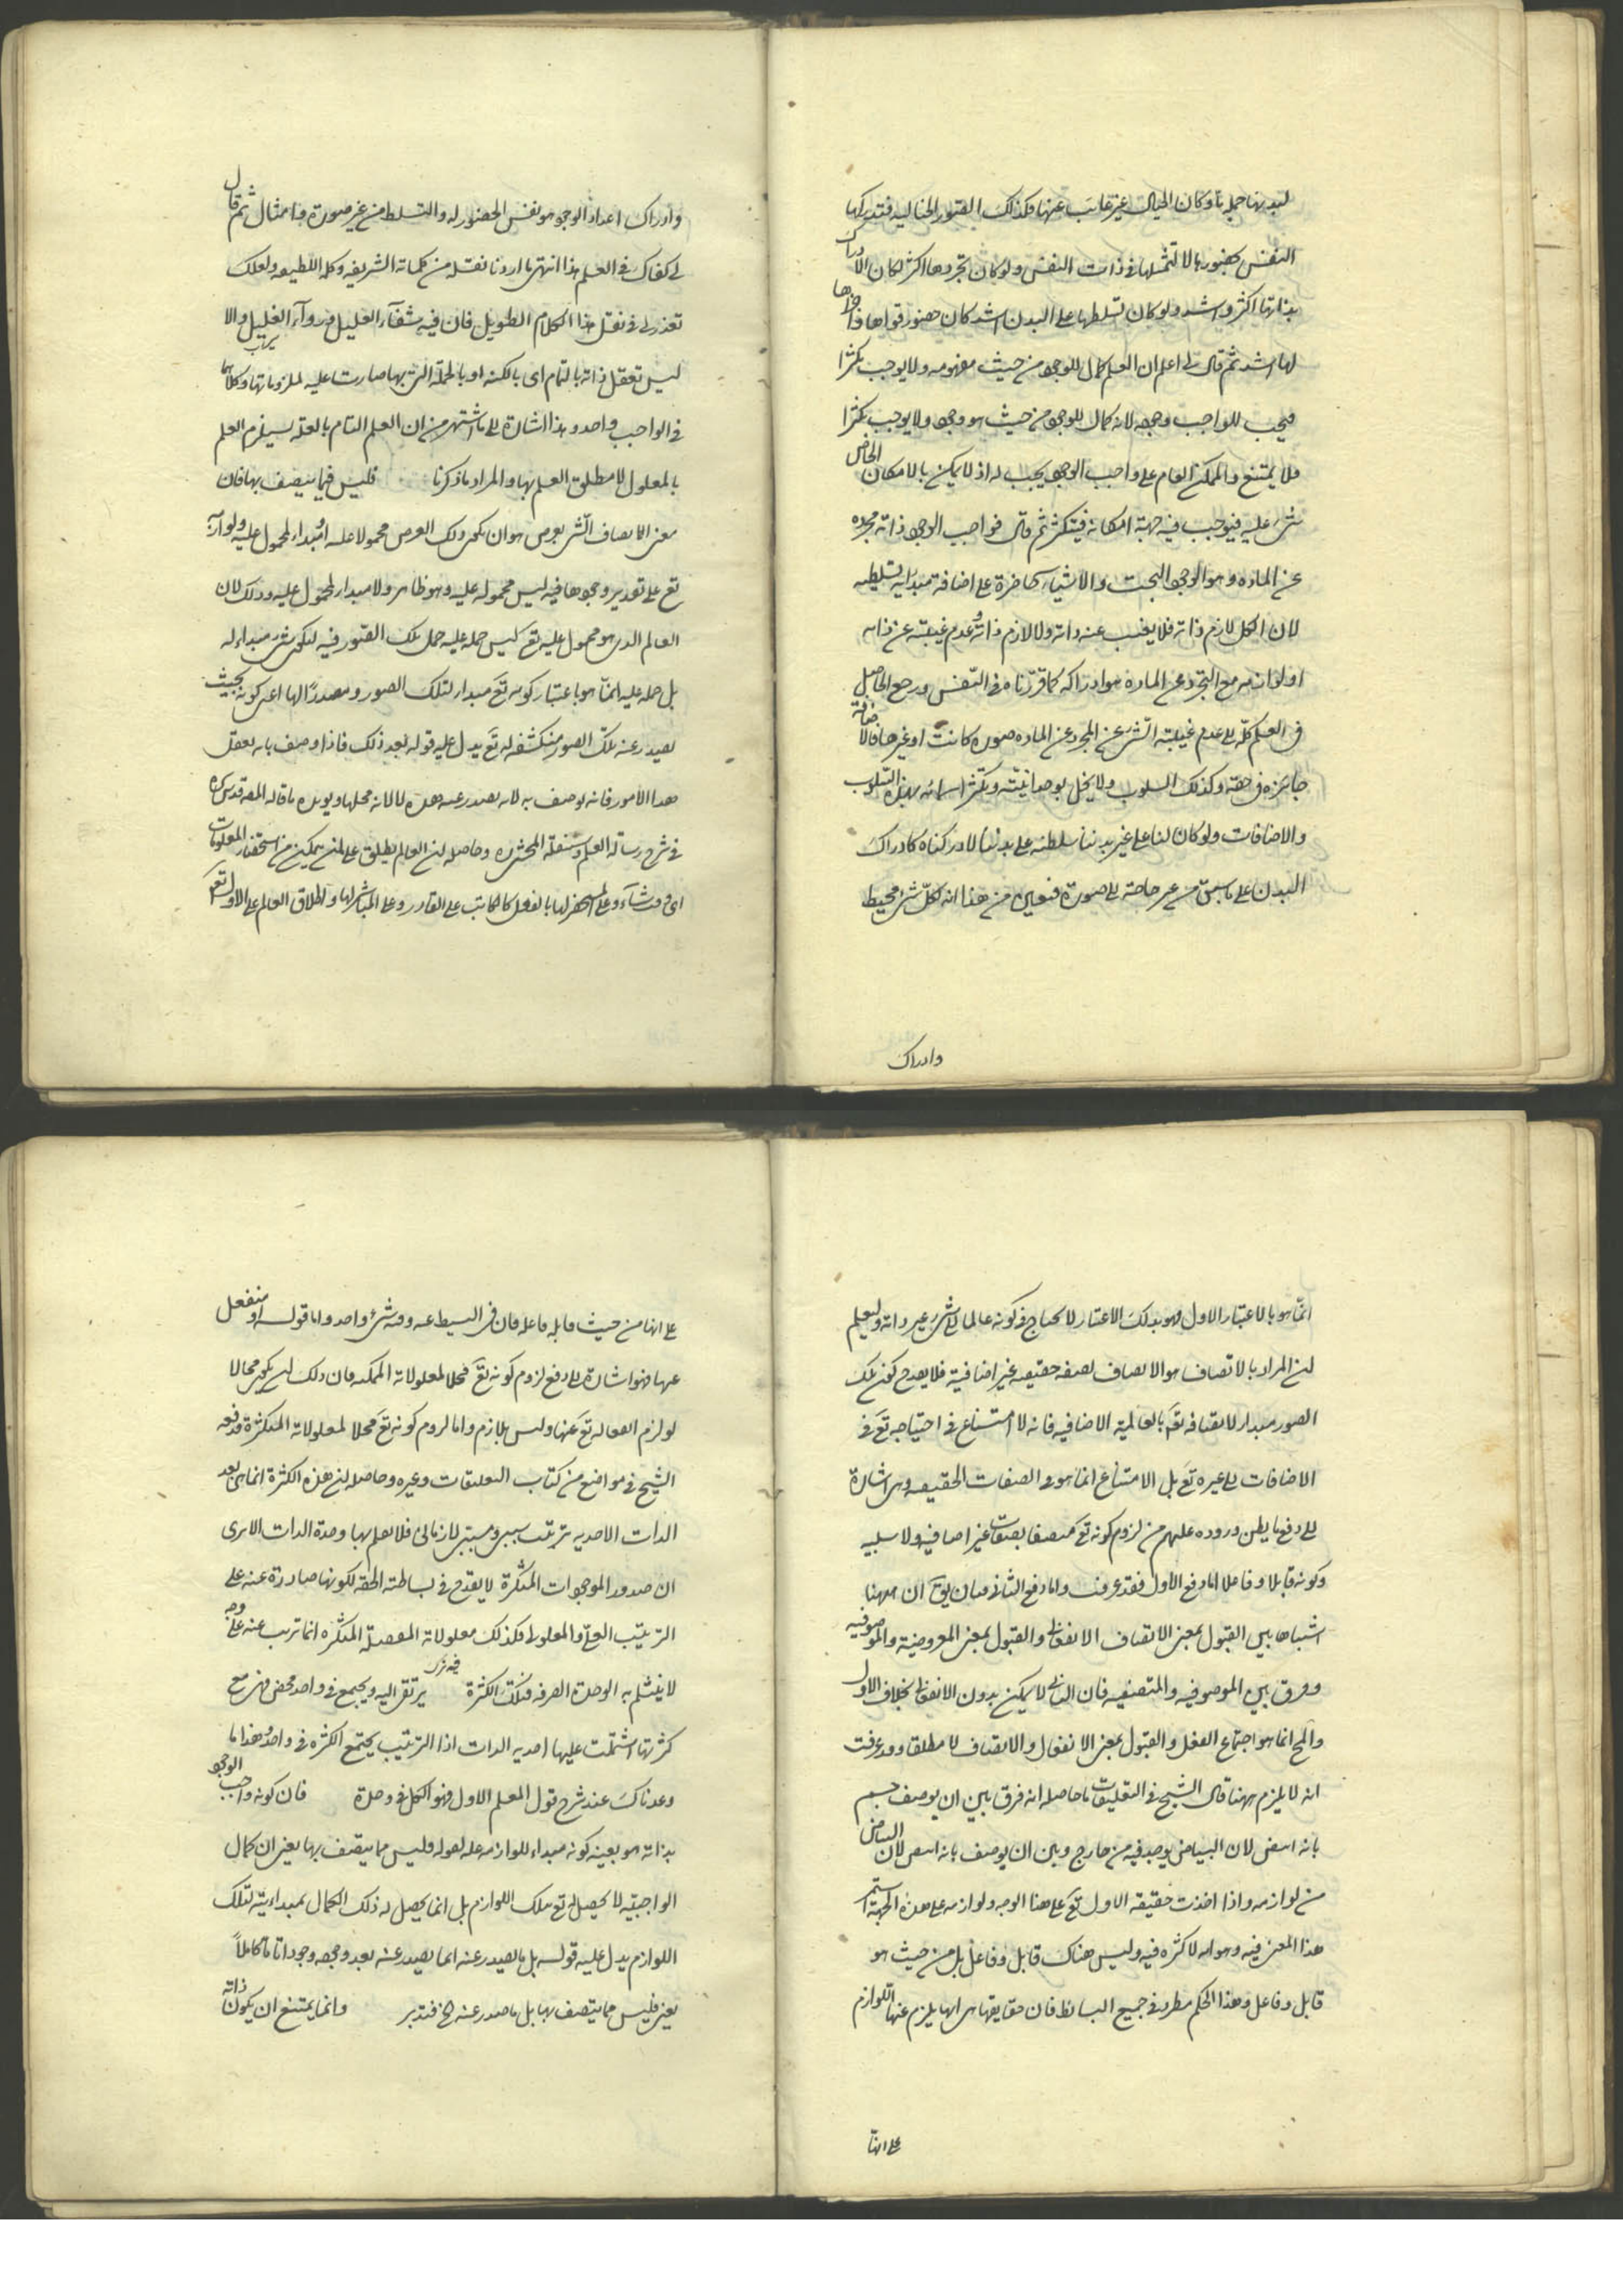 لبدنها جملة ما وكان الخيال غير غائب عنها فكذلك الصور الخيالية فتدركها
النفس بحضورها لا لتمثلها فى ذات النفس ولو كان تجردها اكثر لكان الادراك
بذاتها اكثر واشد ولو كان تسلطها على البدن اشد كان حضور قواها واجزائها
لها اشد ثم قال لى اعلم ان العلم كمال للوجود من حيث مفهومه ولا يوجب تكثرا
فيجب للواجب وجوده لانه كمال للوجود من حيث هو وجود ولا يوجب تكثرا
فلا يمتنع والممكن العام على واجب الوجود يجب له اذ لا يمكن بالامكان الخاص
شئ عليه فيوجب فيه جهة امكانه فيتكثر ثم قال فواجب الوجود ذاته مجرده
عن الماده وهو الوجود البحت والاشياء حاضرة على اضافة مبدائية تسلطيه
لان الكل لازم ذاته فلا يغيب عنه ذاته ولا لازم ذاته وعدم غيبته عن ذاته
او لوازمه مع التجرد عن الماده هو ادراكه كما قررناه فى النفس ورجع الحاصل
فى العلم كله الى عدم غيبة الشئ عن المجرد عن الماده صوره كانت او غيرها فالاضافة
جايزه فى حقه وكذلك السلوب ولا يخل بوحدانيته وتكثر اسمائه بهذه السلوب
والاضافات ولو كان لنا على غير بدننا سلطنه على بدننا لادركناه كادراك
البدن على ما سبق من غير حاجة الى صورة فتعين من هذا انه بكل شئ محيط
وادراك
وادراك اعداد الوجود هو نفس الحضور له والتسلط من غير صورة ومثال ثم قال
لى كفاك فى العلم هذا انتهى ما اردنا نقله من كلماته الشريفه وكلمه اللطيفه ولعلك
تعذرنى فى نقل هذا الكلام الطويل فان فيه شفاء العليل ورواء الغليل والا
ليس تعقل ذاته بالتمام اى بالكنه او بالجملة التى بها صارت علية لملزوماتها وكلاهما
فى الواجب واحد وهذا اشارة الى ما اشتهر من ان العلم التام بالعله يستلزم العلم
بالمعلول لا مطلق العلم بها والمراد ما ذكرنا فليس فيما يتصف بها فان
معنى الاتصاف الشئ بعرض هو ان يكون ذلك العرض محمولا عليه او مبداء لمحمول عليه ولوازمه
تع على تقدير وجودها فيه ليس محمولة عليه وهو ظاهر ولا مبداء لمحمول عليه وذلك لان
العالم الذى هو محمول عليه تع ليس حمله عليه حمل تلك الصور فيه لتكون شئ مبداء له
بل حمله عليه انما هو باعتبار كونه تع مبداء لتلك الصور ومصدرا لها اعنى كونه بحيث
يصدر عنه تلك الصور منكشفه له تع يدل عليه قوله بعد ذلك فاذا وصف بانه يعقل
هذه الامور فانه يوصف به لانه يصدر عنه هذه لا لانه محلها ويويده ما قاله المص قدس سره
فى شرح رسالة العلم وحاصله ان العالم يطلق على من يتمكن من استحضار المعلومات
اى وقت شاء وعلى المستحضر لها بالفعل كالكاتب على القادر وعلى المباشر لها واطلاق العالم على الاول تع
انما هو بالاعتبار الاول فهو بذلك الاعتبار لا يحتاج فى كونه عالما الى شئ غير ذاته وليعلم
ان المراد بالاتصاف هو الاتصاف بصفه حقيقيه غير اضافية فلا يقدح كون تلك
الصور مبداء لاتصافه تع بالعالمية الاضافيه فانه لا امتناع فى احتياجه تع فى
الاضافات الى غيره تع بل الامتناع انما هو فى الصفات الحقيقيه وهى اشارة
الى دفع ما يظن وروده عليهم من لزوم كونه تع متصفا بصفات غير اضافيه ولا سلبيه
وكونه قابلا وفاعلا اما دفع الاول فقد عرفت واما دفع الثانى فبان يق ان ههنا
اشتباها بين القبول بمعنى الاتصاف الانفعالى والقبول بمعنى المعروضية والموصوفيه
وفرق بين الموصوفيه والمتصفيه فان الثانى لا يمكن بدون الانفعال بخلاف الاول
والمح انما هو اجتماع الفعل والقبول بمعنى الانفعال والاتصاف لا مطلقا وقد عرفت
انه لا يلزم ههنا قال الشيخ فى التعليقات ما حاصله انه فرق بين ان يوصف جسم
بانه ابيض لان البياض يوجد فيه من خارج وبين ان يوصف بانه ابيض لان البياض
من لوازمه واذا اخذت حقيقه الاول تع على هذا الوجه ولوازمه على هذه الجهة استمر
هذا المعنى فيه وهو انه لا كثره فيه وليس هناك قابل وفاعل بل من حيث هو
قابل وفاعل وهذا الحكم مطرد فى جميع البسائط فان حقايقها هى انها يلزم عنها اللوازم
على انها
على انها من حيث قابله فاعله فان فى البسيط عنه وفيه شئ واحد واما قوله او منفعل
عنها فهو اشارة الى دفع لزوم كونه تع محلا لمعلولاته الممكنه فان ذلك انما يكون محالا
لو لزم انفعاله تع عنها وليس بلازم واما لزوم كونه تع محلا لمعلولاته المتكثرة فدفعه
الشيخ فى مواضع من كتاب التعليقات وغيره وحاصله ان هذه الكثرة انما هى بعد
الذات الاحديه بترتيب سببى ومسببى لا زمانى فلا ينثلم بها وحدة الذات الا ترى
ان صدور الموجودات المتكثرة لا يقدح فى بساطته الحقه لكونها صادرة عنه على
الترتيب العلى والمعلولى فكذلك معلولاته المفصلة المتكثره انما ترتب عنه على وجه
لا ينثلم به الوحدة الصرفه فتلك الكثرة يرتقى اليه ويجتمع فى واحد محض فهى مع
كثرتها اشتملت عليها احديه الذات اذا الترتيب يجمع الكثره فى واحد وهذا ما
وعدناك عند شرح قول المعلم الاول فهو الكل فى وحدة فان كونه واجب الوجود
بذاته هو بعينه كونه مبداء للوازمه عله لقوله فليس مما يتصف بها يعنى ان كمال
الواجبيه لا يحصل له تع بتلك اللوازم بل انما يحصل له ذلك الكمال بمبدائية لتلك
اللوازم يدل عليه قوله بل ما يصدر عنه انما يصدر عنه بعد وجوده وجودا تاما كاملا
يعنى فليس مما يتصف بها بل ما صدر عنه الخ فتدبر وانما يمتنع ان يكون ذاته